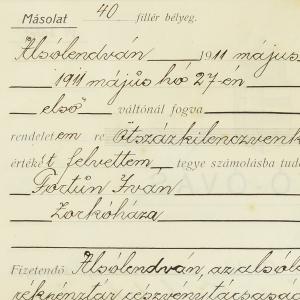 Másolat 40 fillér bélyeg.
Alsólendván 1911 május
1911 május hó 27-én
első váltónál fogva
rendeletem re Ötszázkilenczvenk
értékét felvettem tegye számolásba tud
Fortún Iván
Zorkóháza
Fizetendő Alsólendván, az alsól
részvénytársaság